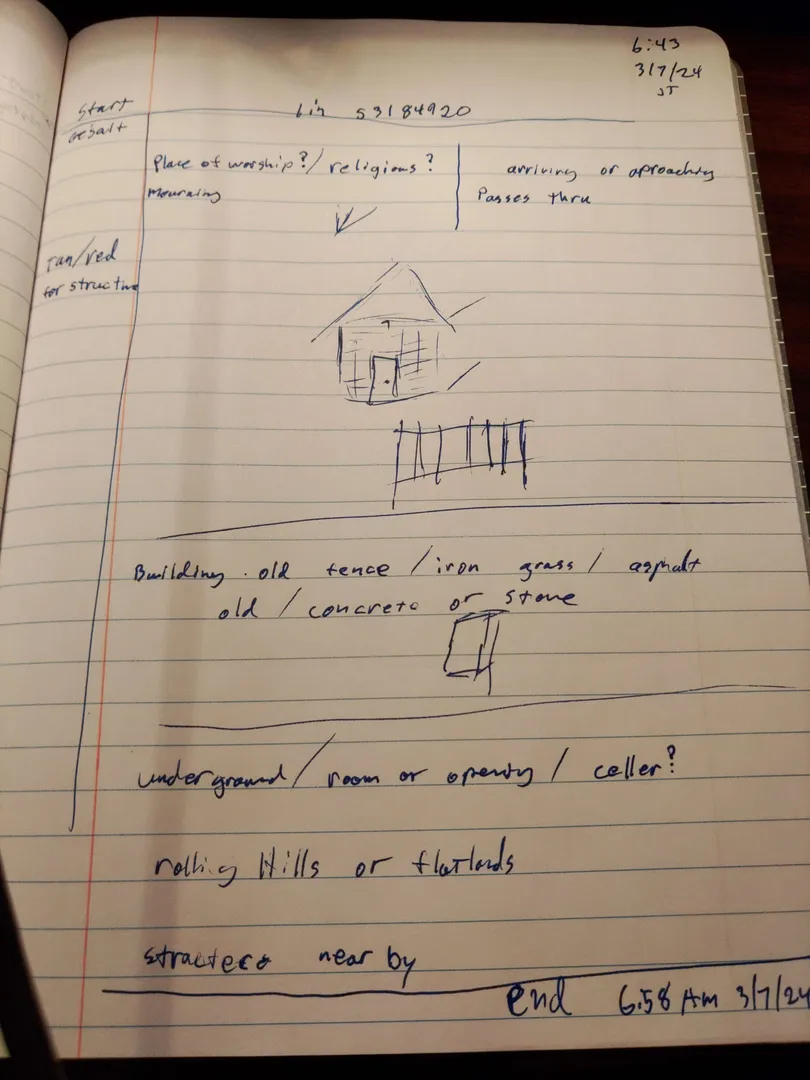 6:43
3/7/24
JT
Start
53184920
Place of worship?/ religious?
Mourning
arriving or aproaching
Passes thru
Tan/red
for structure
?
Building . old fence / iron grass / asphalt
old / concrete or stone
underground / room or opening / celler?
rolling Hills or flatlands
near by
end 6:58 Am 3/7/24